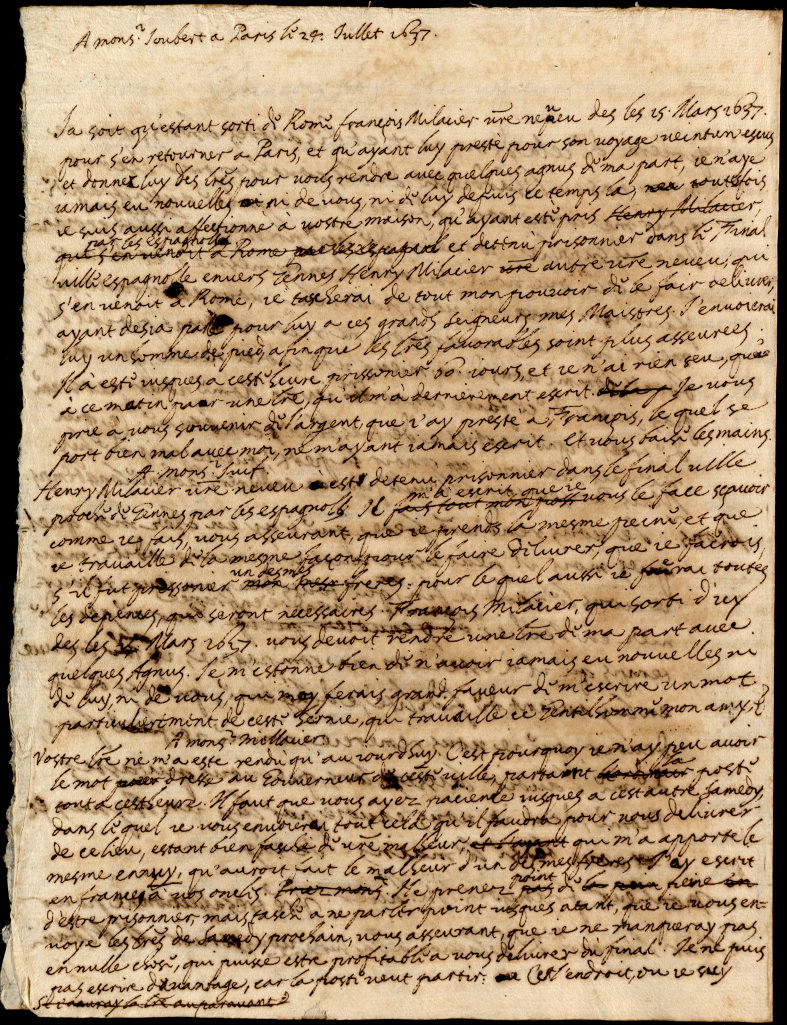 A mons.r Joubert a Paris le 24. Jullet 1637.
Ja soit qu'estant sorti de Rome françois Milavier vre neveu des les 15. Mars 1637.
pour s'en retourner a Paris, et qu'ayant luy presté pour son voyage veintun escus
et donnez luy des lres pour vous rendre avec quelques agnus de ma part, ie n'aye
iamais eu nouvelles ni de vous, ni de luy depuis ce temps la, toutefois
ie suis aussi affectionne à vostre maison, qu'ayant esté pris Henry Milavier,
par les espagnolles
qui s'en venoit à Rome par les espagnols et detenu prisonnier dans le Final
ville espagnolle envers Gennes Henry Milavier vre autre vre neveu, qui
s'en venoit à Rome, ie tascherai de tout mon pouvoir de le fair delivrer,
ayant desia parlé pour luy a ces grands seigneurs mes Maistres. J'envoierai
luy un homme de pied afinque les lres favorables soint plus asseurees.
Il à esté iusques a ceste heure prisonnier 60. iours, et ie n'ai rien seu, que
à ce matin par une lre, qu'il m'à dernierement escrit. Je vous
prie a vous souvenir de l'argent, que i'ay presté à François, le quel se
port bien mal avec moi, ne m'ayant iamais escrit. Et vous baise les mains.
A mons.r Juif.
Henry Milavier vre neveu est detenu prisonnier dans le final ville
proche de Gennes par les espagnols. Il m'a escrit que ie
fais tout mon poss vous le face scavoir
comme ie fais, vous asseurant, que ie prens la mesme peine, et que
ie travaille de la mesme façon pour le faire delivrer, que ie fairois,
s'il fut pressonier un des mes
mon freres: pour le quel aussi ie fairai toutes
les depenses, que seront necessaires. François Milavier, qui sorti d'icy
des les 15. Mars 1637. vous devoit rendre une lre de ma part avec
quelques Agnus. Je m'estonne bien de n'avoir iamais eu nouvelles ni
de luy, ni de vous, qui me ferais grand faveur de m'escrire un mot
particulierment de ceste genie, qui travaille ce Gentelhomme mon amy.
A mons.r Mellavier.
Vostre lre ne m'a este rendu qu'au iourdhuy. C'est pourquoy ie n'ay peu avoir
le mot dresse au Gouverneur de ceste ville, partant la poste
tout a cest heure. Il faut que vous ayez pacience iusques a cest autre Samedy,
dans le quel ie vous envoierai tout cela, qu'il faudra pour vous delivrer
de ce lieu, estant bien fasché de vre malheur, qui m'a apporté le
mesme ennuy, qu'auroit fait le malheur d'un des mes freres. J'ay escrit
en françes à vos oncles. Ne prenez point
pas de la peine
d'estre prisonnier, mais tasché a ne partir point iusques atant, que ie vous en-
voye les lres de Samedy prochain, vous asseurant, que ie ne manqueray pas
en nulle chose, qui puisse estre profitable a vous delivrer du final. Je ne puis
pas escrire davantage, car la poste veut partir. C'est endroit, ou ie suy